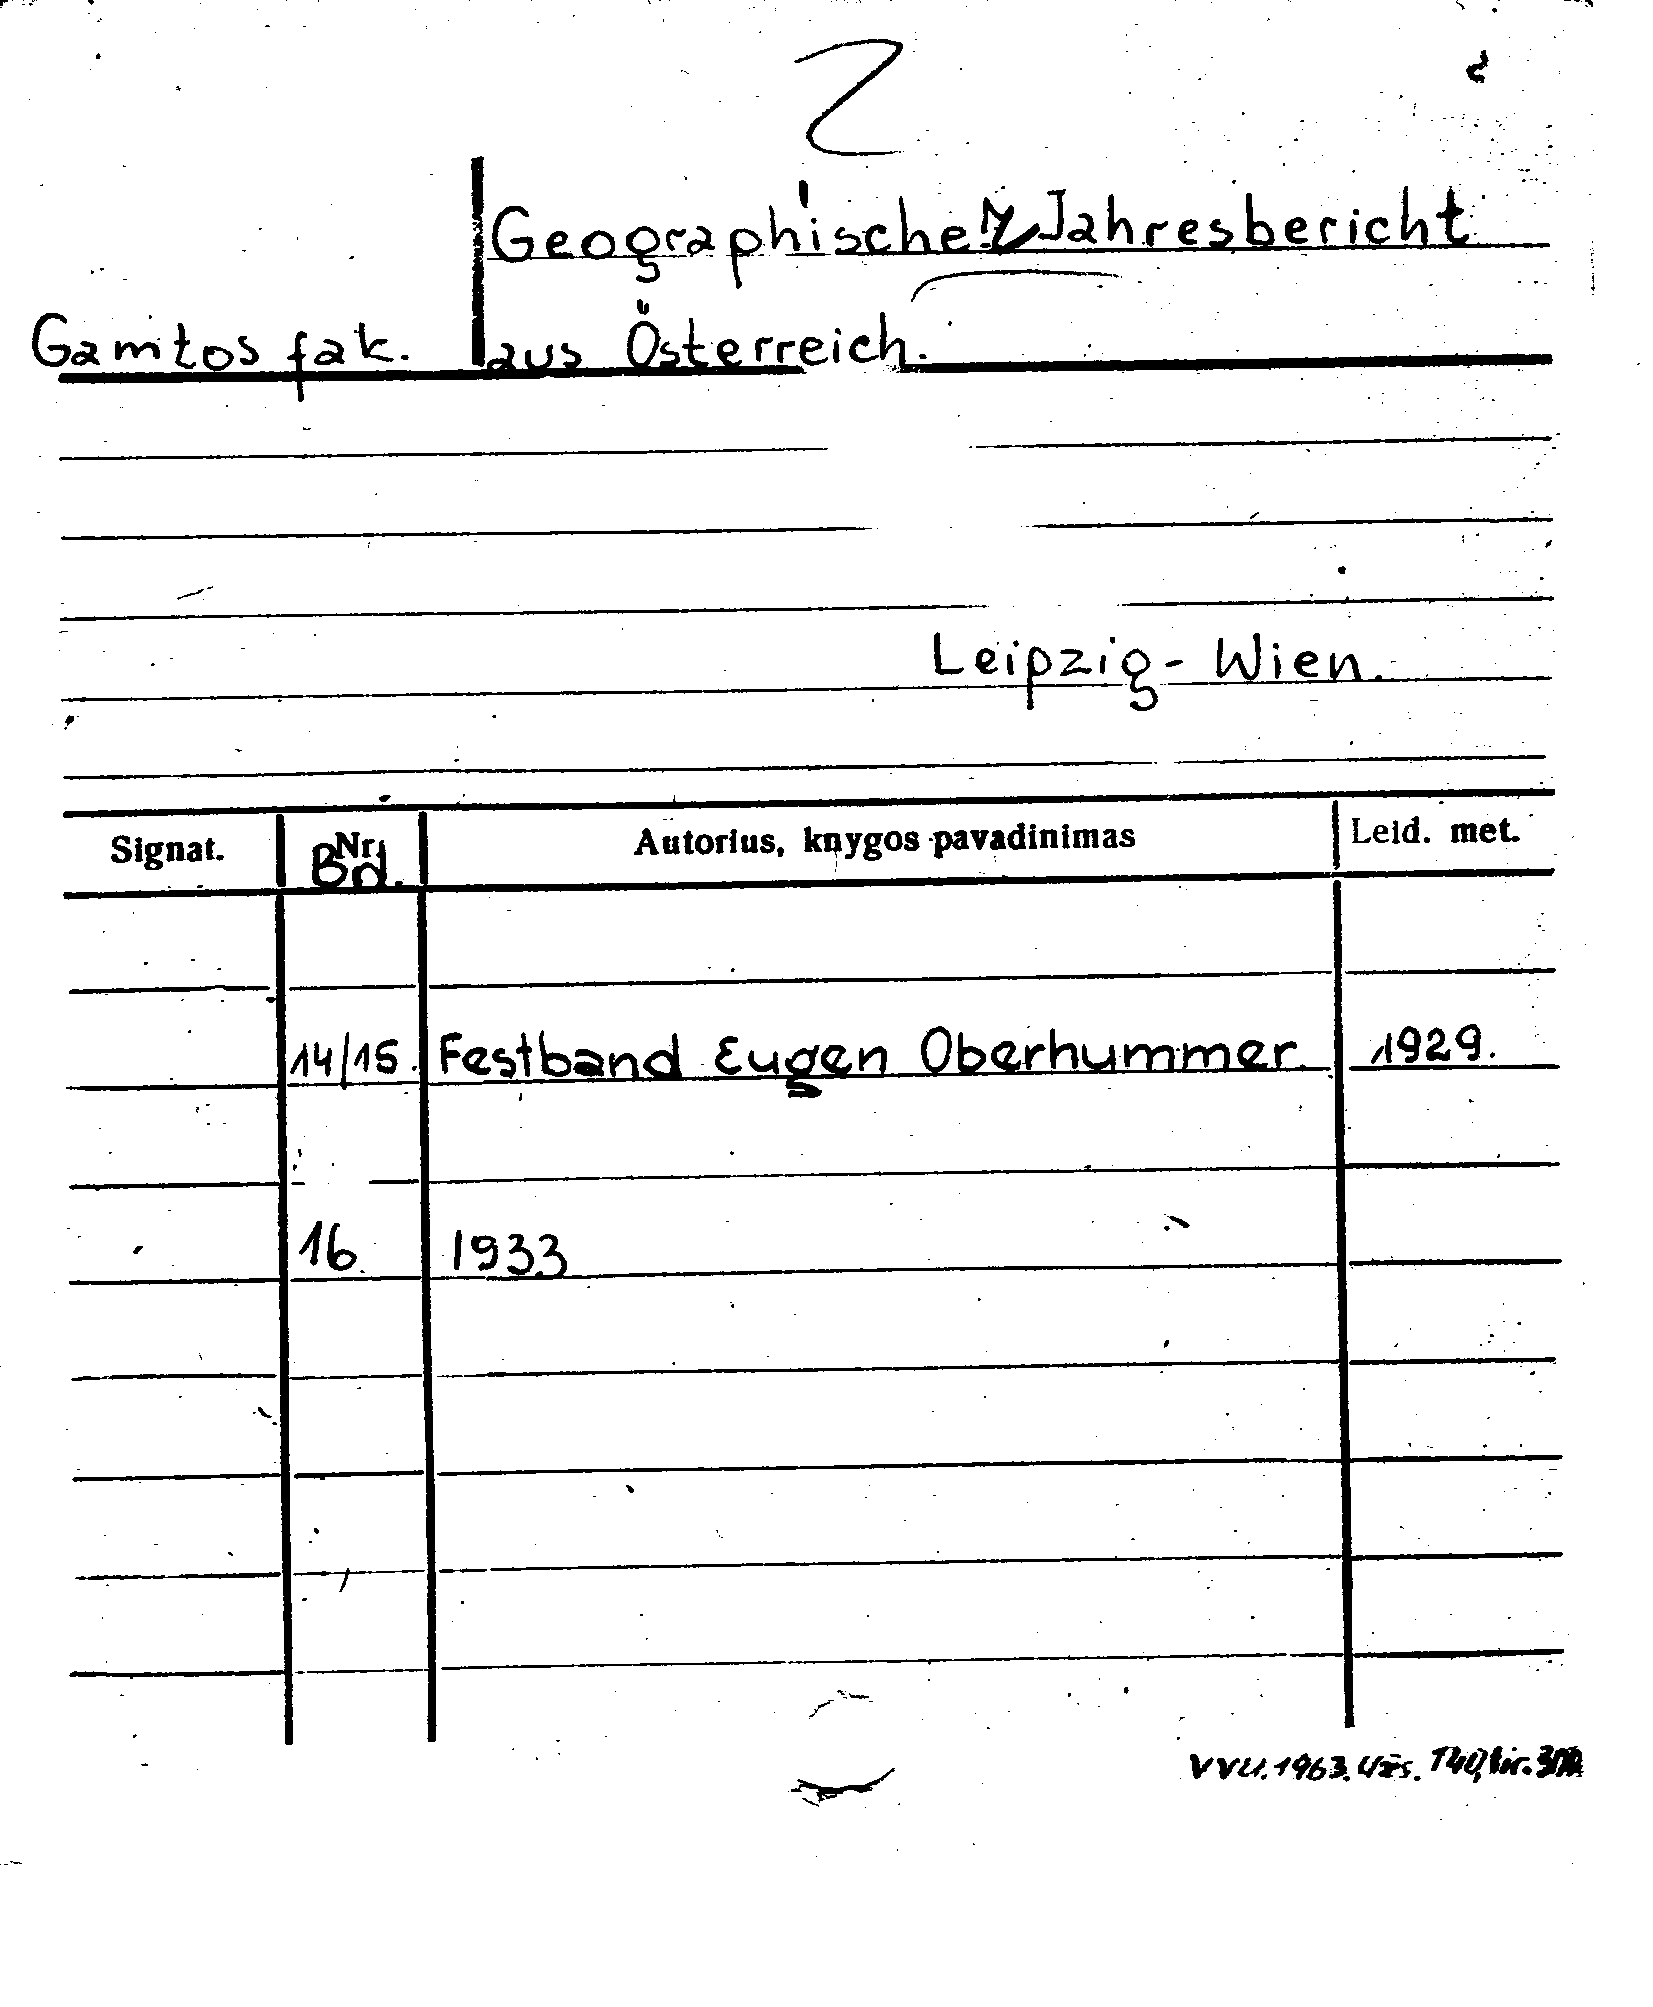 Z
Geographischer Jahresbericht
Gamtos fak. aus Österreich.
Leipzig - Wien.
Signat. Nr. Bd. Autorius, knygos pavadinimas Leid. met.
14/15. Festband Eugen Oberhummer. 1929.
16. 1933
VVU. 1963. Užs. 740, tir.